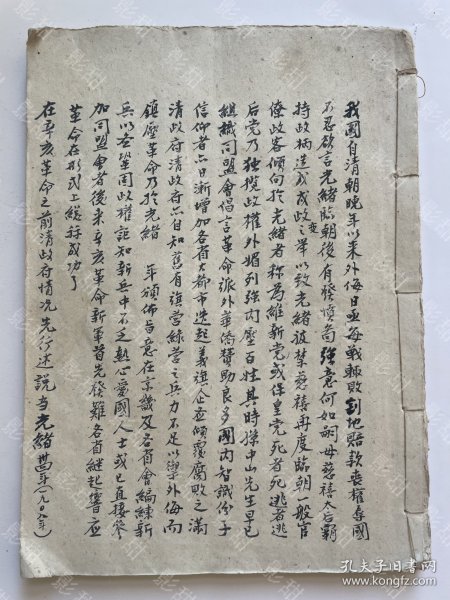 我國自清朝晚年以来外侮日亟每戰輒敗割地賠款喪權辱國
不忍欲言光緒臨朝後有發憤圖強意何如嗣母慈禧太后霸
持政柄造成戊戌政變之举以致光緒被禁慈禧再度臨朝一般官
僚政客傾向於光緒者称為維新党或保皇党死者死逃者逃
后党乃独攬政權外媚列強内壓百姓其時孫中山先生早已
組織同盟會倡言革命派外華僑賛助良多國内智識份子
信仰者亦日漸增加各省大都市迭起義旗企圖傾覆腐敗之滿
清政府清政府亦自知舊有旗营綠营之兵力不足以禦外侮而
鎮壓革命乃於光緒 年頒佈旨意在京畿及各省會編練新
兵以crossed鞏固政權詎知新兵中不乏熱心愛國人士或已直接參
加同盟會者後来辛亥革命新軍首先發難各省继起響应
革命在形式上總算成功了
在辛亥革命之前清政府情况先行述說当光緒卅四年(一九〇八年)
影甜
孔夫子旧书网
www.kongfz.com